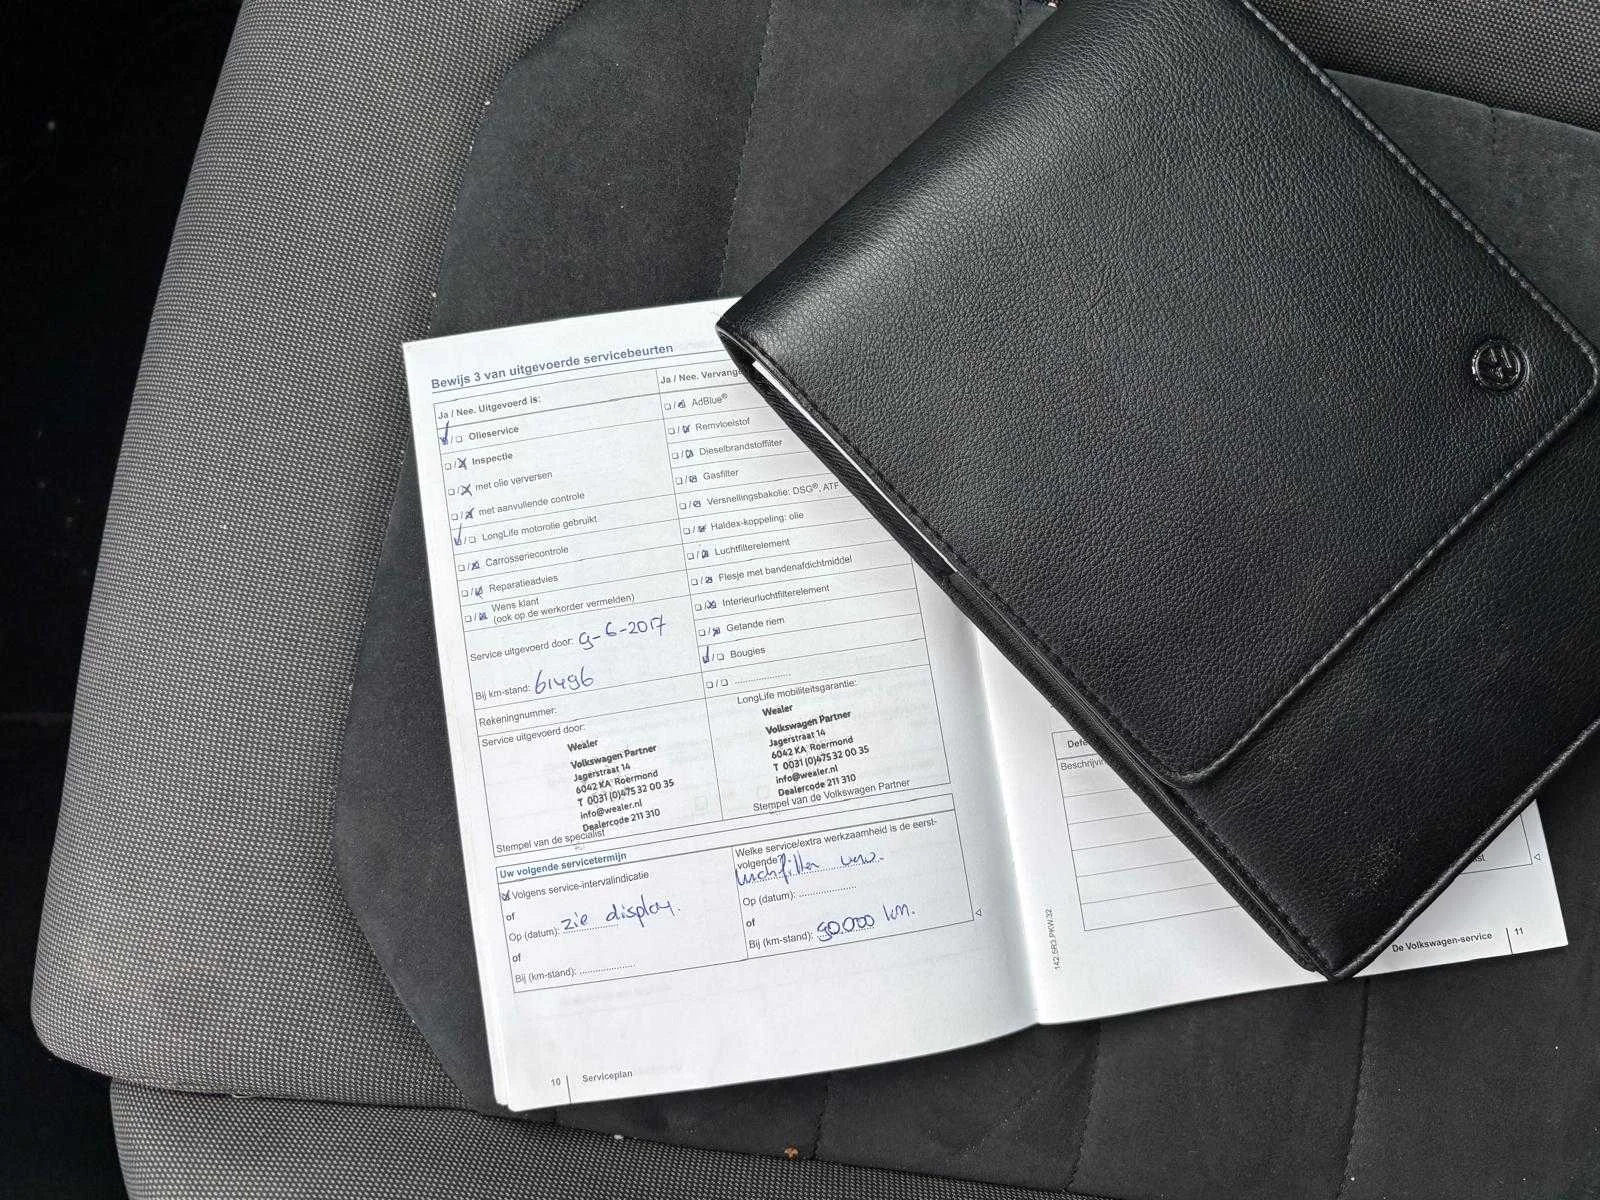 Bewijs 3 van uitgevoerde servicebeurten
Ja / Nee. Uitgevoerd is:
Olieservice
Inspectie
met olie verversen
met aanvullende controle
LongLife motorolie gebruikt
Carrosseriecontrole
Reparatieadvies
Wens klant
(ook op de werkorder vermelden)
Service uitgevoerd door: 9-6-2017
Bij km-stand: 61496
Rekeningnummer:
Service uitgevoerd door:
Wealer
Volkswagen Partner
Jagerstraat 14
6042 KA Roermond
T 0031 (0)475 32 00 35
info@wealer.nl
Dealercode 211 310
Stempel van de specialist
Ja / Nee.
AdBlue®
Remvloeistof
Dieselbrandstoffilter
Gasfilter
Versnellingsbakolie: DSG®, ATF
Haldex-koppeling: olie
Luchtfilterelement
Flesje met bandenafdichtmiddel
Interieurluchtfilterelement
Getande riem
Bougies
LongLife mobiliteitsgarantie:
Wealer
Volkswagen Partner
Jagerstraat 14
6042 KA Roermond
T 0031 (0)475 32 00 35
info@wealer.nl
Dealercode 211 310
Stempel van de Volkswagen Partner
Uw volgende servicetermijn
Volgens service-intervalindicatie
of
Op (datum): zie display.
of
Bij (km-stand):
Welke service/extra werkzaamheid is de eerst-
volgende?
Op (datum):
of
Bij (km-stand): 90.000 km.
10 Serviceplan
142.5R3.PKW.32
De Volkswagen-service 11